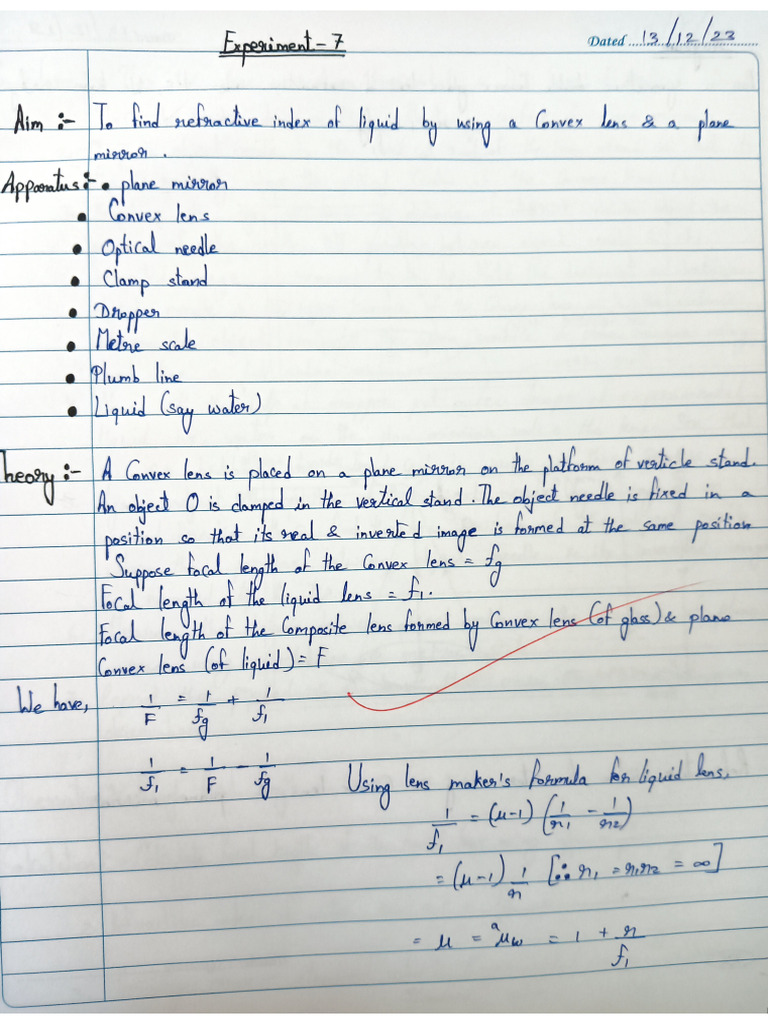 Experiment-7
Dated 13/12/23
Aim :- To find refractive index of liquid by using a Convex lens & a plane
mirror.
Apparatus:- • plane mirror
• Convex lens
• Optical needle
• Clamp stand
• Dropper
• Metre scale
• Plumb line
• Liquid (say water)
Theory :- A Convex lens is placed on a plane mirror on the platform of verticle stand.
An object O is clamped in the vertical stand. The object needle is fixed in a
position so that its real & inverted image is formed at the same position
Suppose focal length of the Convex lens = fg
Focal length of the liquid lens = f₁.
Focal length of the Composite lens formed by Convex lens (of glass) & plano
Convex lens (of liquid) = F
We have, 1/F = 1/fg + 1/f₁
1/f₁ = 1/F - 1/fg Using lens maker's formula for liquid lens,
1/f₁ = (μ-1) (1/r₁ - 1/r₂)
= (μ-1) 1/r [∴ r₁ = r, r₂ = ∞]
= μ = ᵃμw = 1 + r/f₁